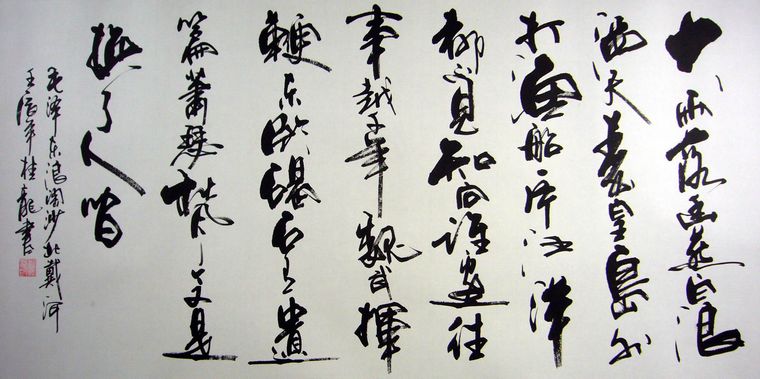 大雨落幽燕白浪
滔天秦皇島外
打漁船一片汪洋
都不見知向誰邊往
事越千年魏武揮
鞭東臨碣石有遺
篇蕭瑟秋風今又是
換了人間
毛泽东浪淘沙北戴河
壬辰年桂龍書